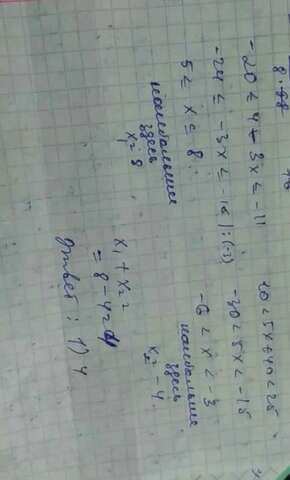 -20 < 4 - 3x ≤ -11
-24 ≤ -3x ≤ -16 |:(-3)
5 < x ≤ 8
наибольшее
здесь
x₁ = 8
10 < 5x + 40 < 25
-30 < 5x < -15
-6 < x < -3
наибольшее
здесь
x₂ = -4
x₁ + x₂ =
= 8 - 4 = 4
Ответ: 1) 4